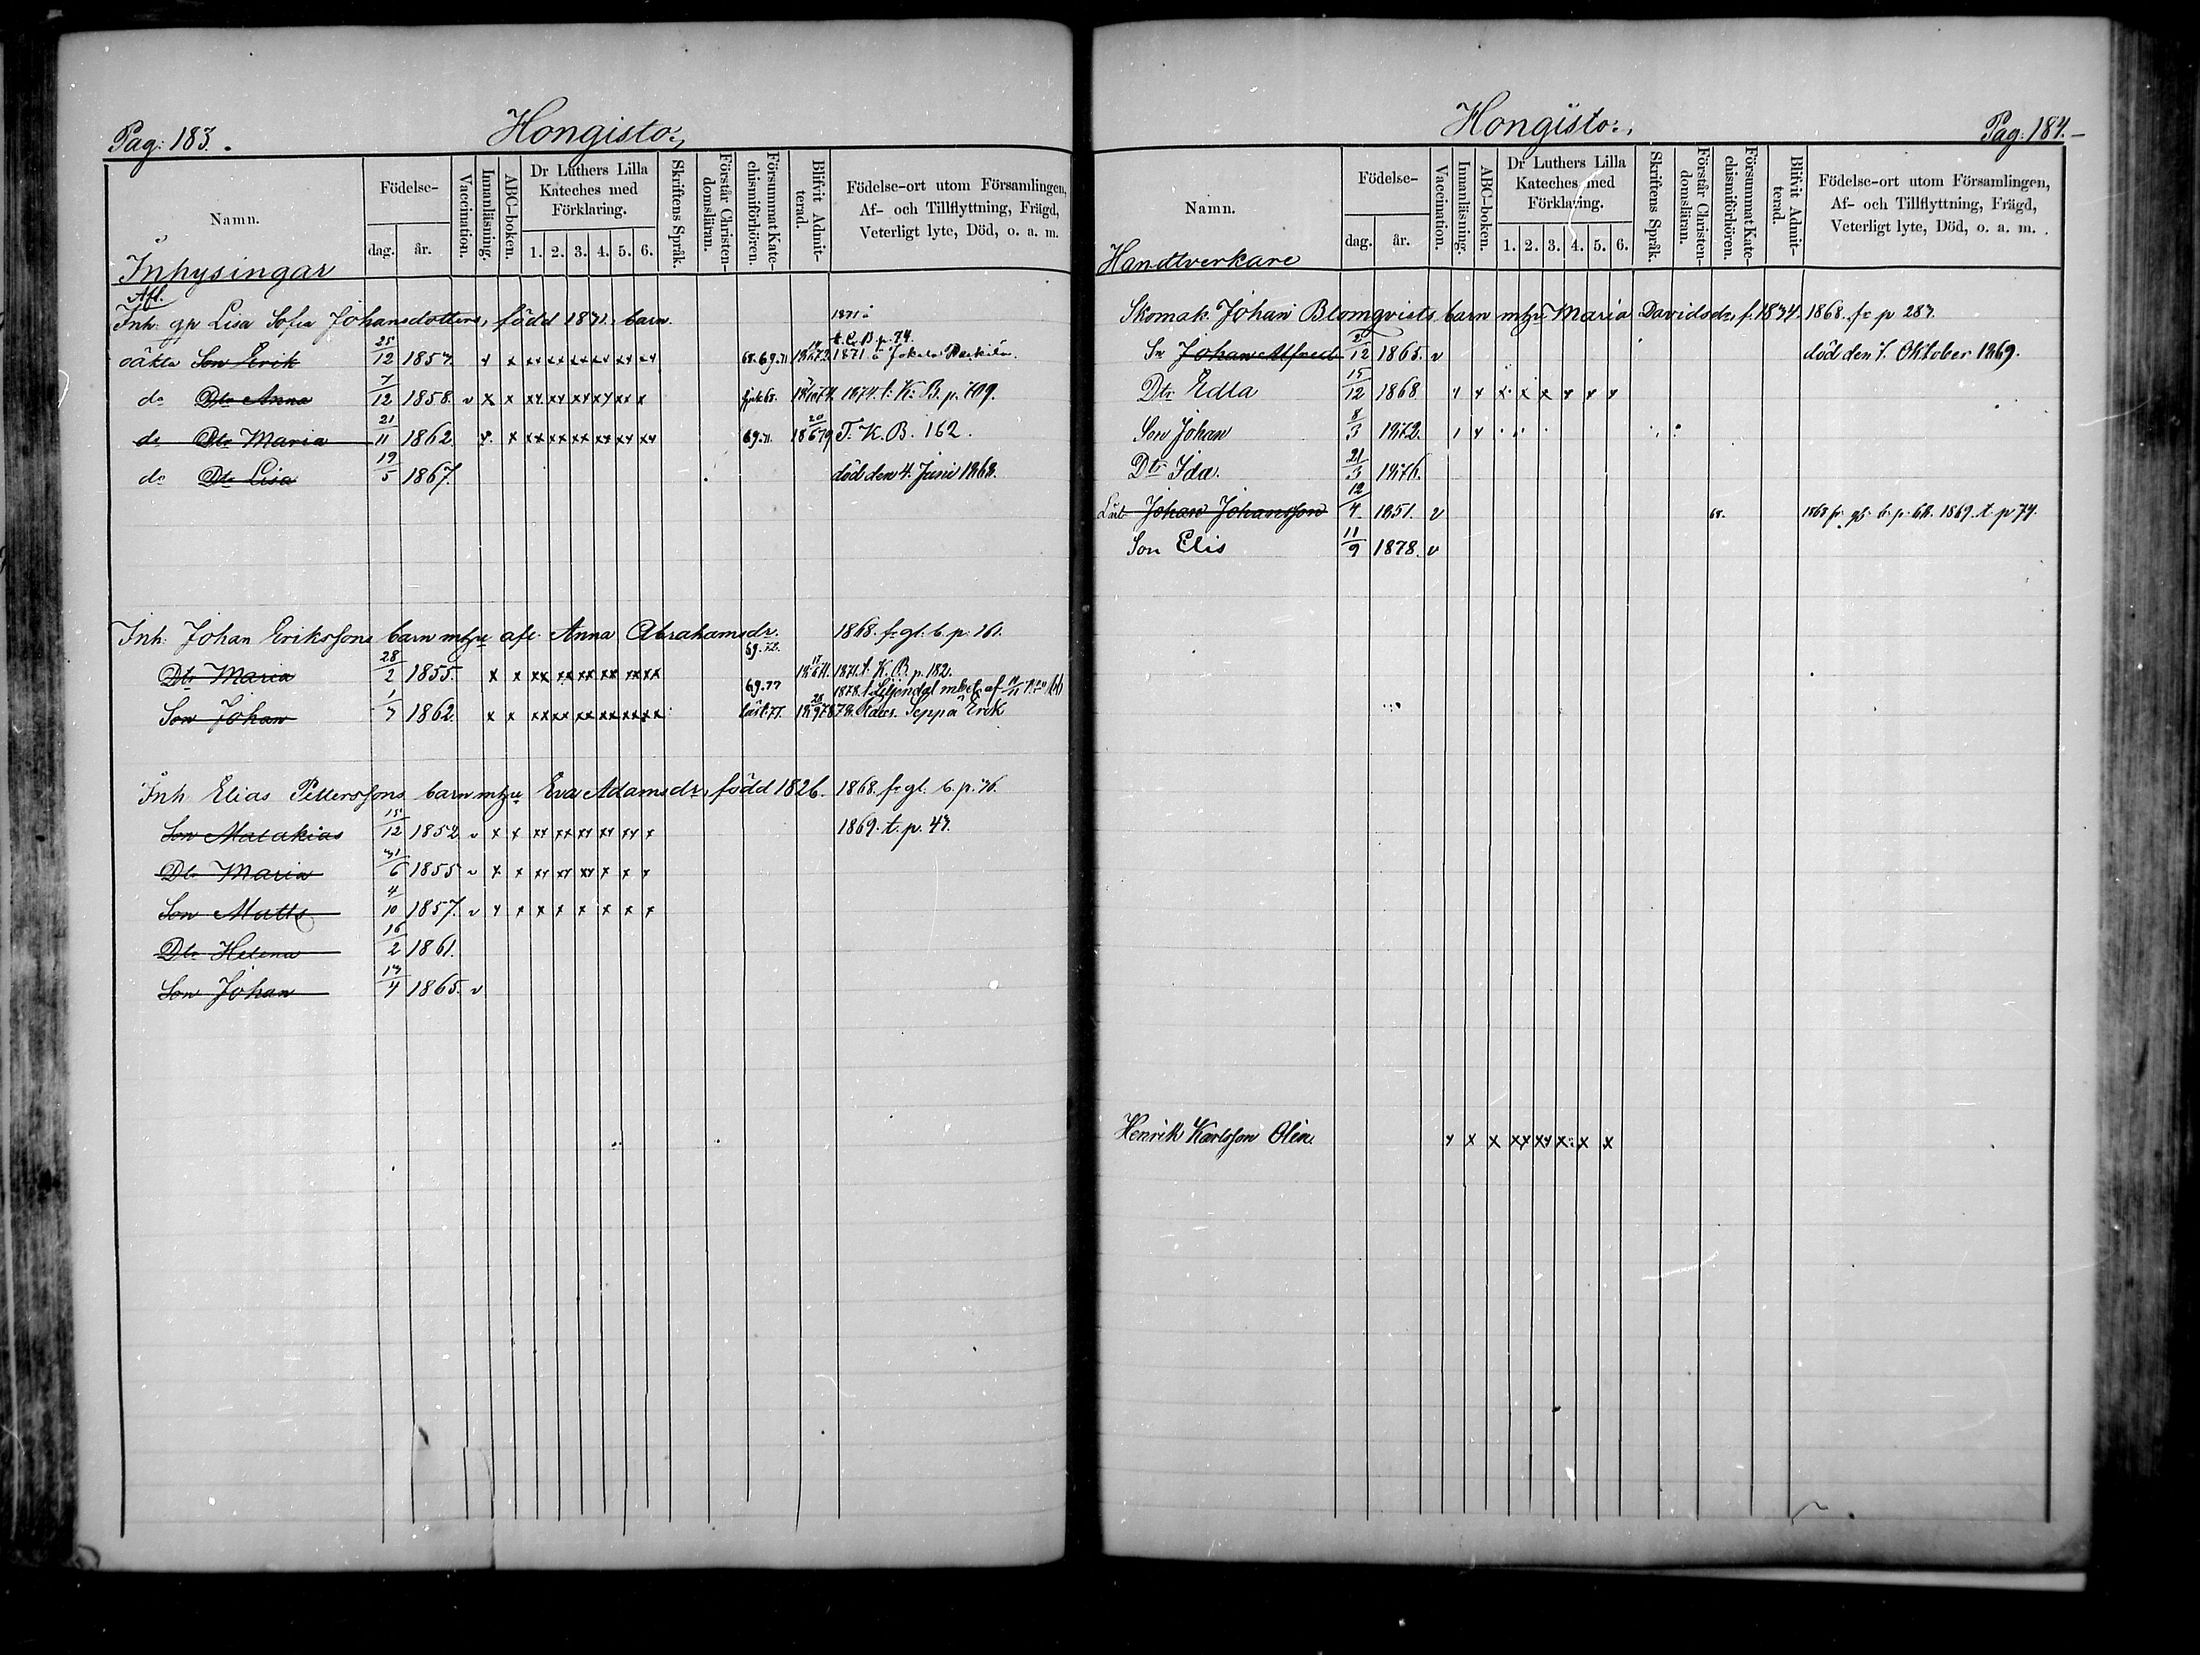 Pag: 183.
Hongisto:,
Namn.
Födelse-
dag.
år.
Vaccination.
Innanläsning.
ABC-boken.
Dr Luthers Lilla Kateches med Förklaring.
1. 2. 3. 4. 5. 6.
Skriftens Språk.
Förstår Christen-domsläran.
Försummat Kate-chismiförhören.
Blifvit Admit-terad.
Födelse-ort utom Församlingen,
Af- och Tillflyttning, Frägd,
Veterligt lyte, Död, o. a. m.
Inhysingar
Afl.
Inh. gp Lisa Sofia Johansdotters, född 1831, barn
oäkta Son Erik 25/12 1857. x x xx xx xx xx xx xx 68.69.71
do Dtr Anna 7/12 1858. v x x xx xx xx xx xx x 1874. t. K. B. p. 709.
do Dtr Maria 21/11 1862. x x xx xx xx xx xx xx 69.71. T. K. B. 162.
do Dtr Lisa 19/5 1867. död den 4. Juni 1868.
Inh. Johan Erikssons barn mhu afl. Anna Abrahamsdr. 1868. fr gl. b. p. 161.
69.72.
Dtr Maria 28/2 1855. x x xx xx xx xx xx xx 1871. t. K. B. p. 182.
69.77
Son Johan 1/7 1862. x x xx xx xx xx xx xx Seppä Erik
Inh. Elias Petterssons barn mhu Eva Adamsdr, född 1826. 1868. fr gl. b. p. 76.
Son Malakias 15/12 1852. v x x xx xx xx xx xx x 1869. t. p. 47.
Dtr Maria 31/6 1855 v x x xx xx xx x x x
Son Matts 4/10 1857. v x x x x x x x x
Dtr Helena 16/2 1861.
Son Johan 13/4 1865. v
Hongisto:,
Pag: 184.
Namn.
Födelse-
dag.
år.
Vaccination.
Innanläsning.
ABC-boken.
Dr Luthers Lilla Kateches med Förklaring.
1. 2. 3. 4. 5. 6.
Skriftens Språk.
Förstår Christen-domsläran.
Försummat Kate-chismiförhören.
Blifvit Admit-terad.
Födelse-ort utom Församlingen,
Af- och Tillflyttning, Frägd,
Veterligt lyte, Död, o. a. m.
Handtverkare
Skomak. Johan Blomqvists barn mhu Maria Davidsdr, f. 1834. 1868. fr p 287.
Sn Johan Alfred 12 1865. v död den 1. Oktober 1869.
Dtr Edla 15/12 1868. x x x x x x x x
Son Johan 8/3 1872.
Dtr Ida. 21/3 1876.
Johan Johansson 12/4 1851. v 68. 1868 fr. gl. b. p. 68. 1869. t. p 74.
Son Elis 11/9 1878. v
Henrik Karlsson Olin. x x x xx xx x x x